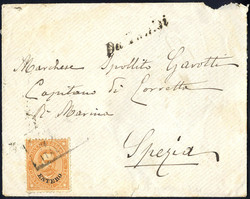 Da Tunisi
Marchese Ippolito Garotti
Capitano di Corvetta
Rª Marina
Spezia
ESTERO